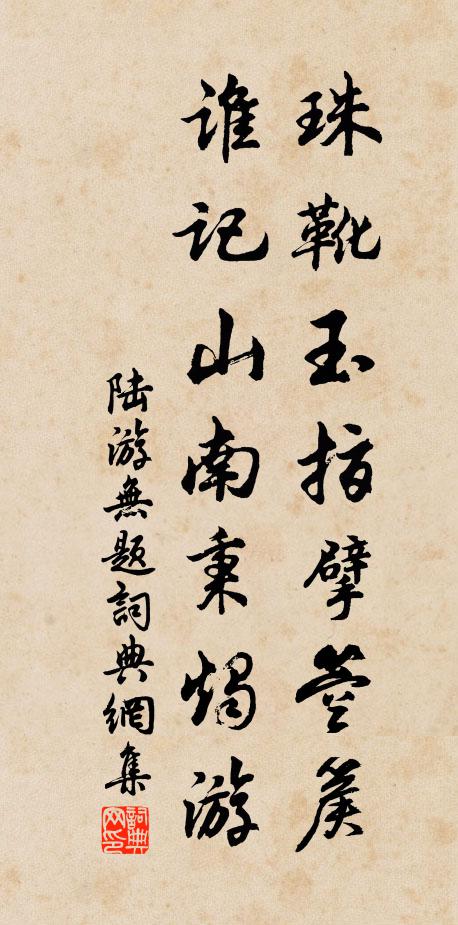 珠靴玉指擘箜篌
誰記山南秉燭游
陆游無題詞典網集
詞典网印